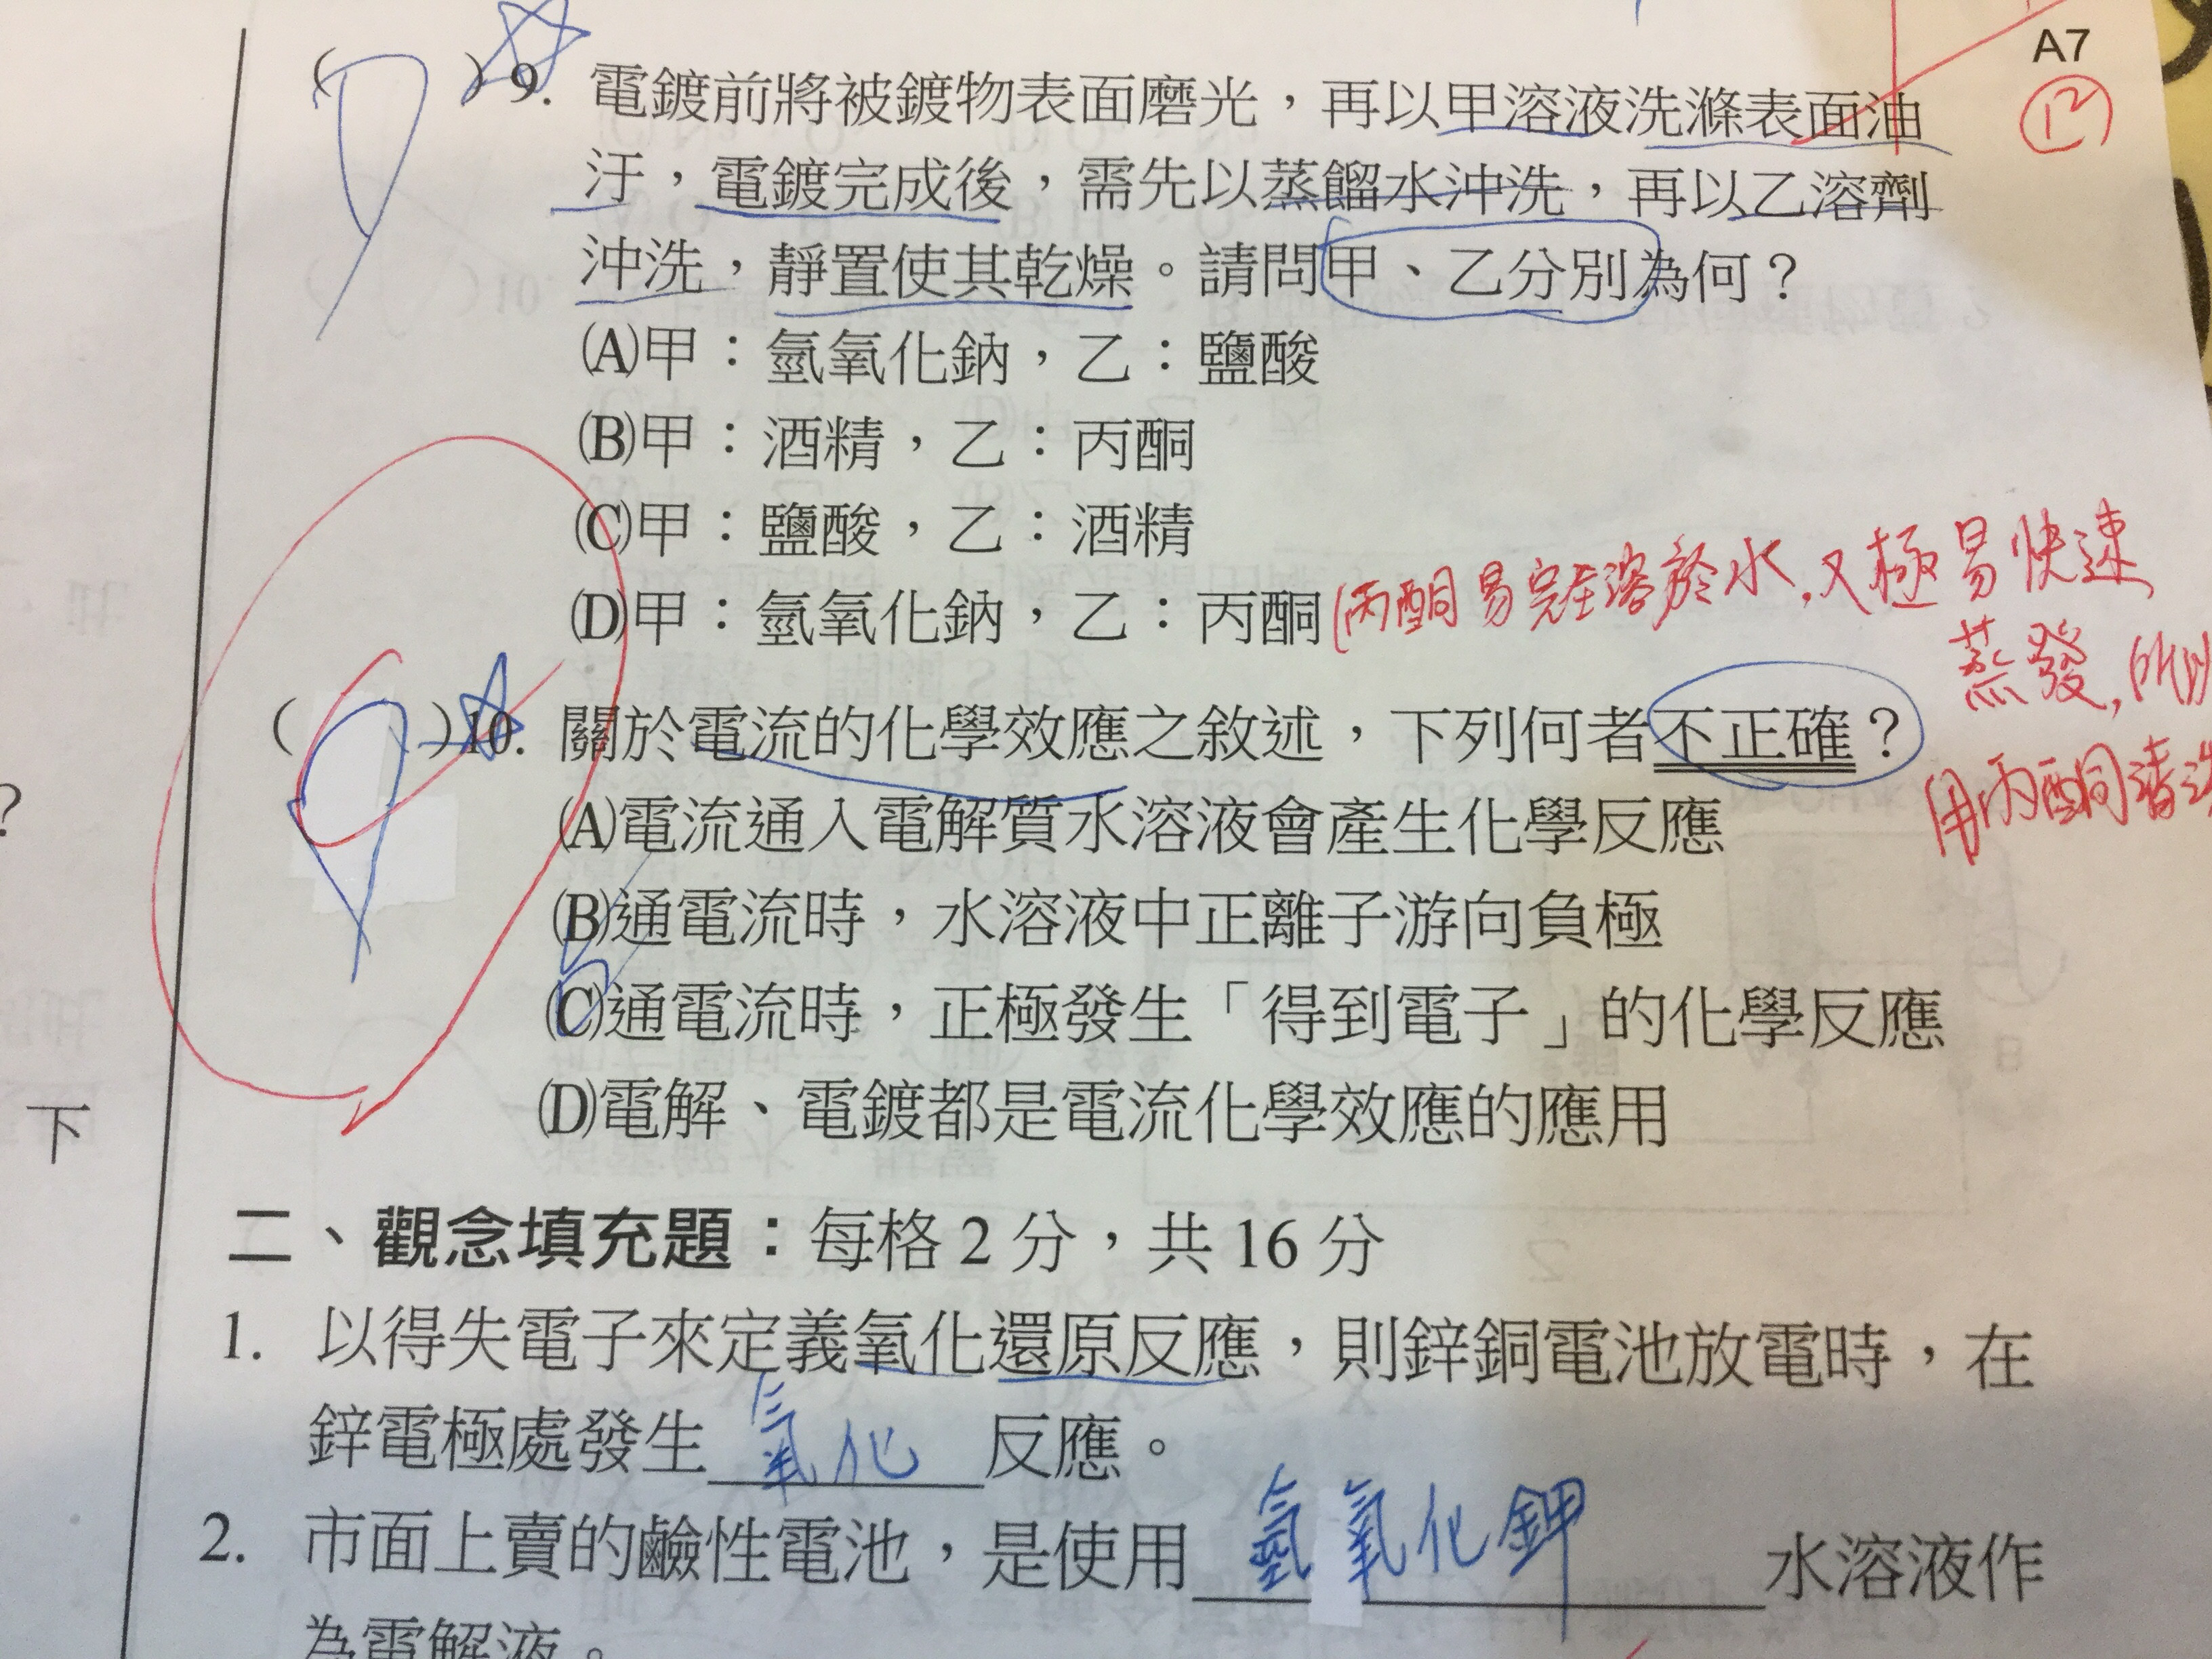 A7
12
( )9. 電鍍前將被鍍物表面磨光，再以甲溶液洗滌表面油
汙，電鍍完成後，需先以蒸餾水沖洗，再以乙溶劑
沖洗，靜置使其乾燥。請問甲、乙分別為何？
(A)甲：氫氧化鈉，乙：鹽酸
(B)甲：酒精，乙：丙酮
(C)甲：鹽酸，乙：酒精
(D)甲：氫氧化鈉，乙：丙酮
(丙酮易完全溶於水，又極易快速
蒸發，所以
用丙酮清洗
( )10. 關於電流的化學效應之敘述，下列何者不正確？
(A)電流通入電解質水溶液會產生化學反應
(B)通電流時，水溶液中正離子游向負極
(C)通電流時，正極發生「得到電子」的化學反應
(D)電解、電鍍都是電流化學效應的應用
？
下
二、觀念填充題：每格 2 分，共 16 分
1. 以得失電子來定義氧化還原反應，則鋅銅電池放電時，在
鋅電極處發生 氧化 反應。
2. 市面上賣的鹼性電池，是使用 氫氧化鉀 水溶液作
為電解液。